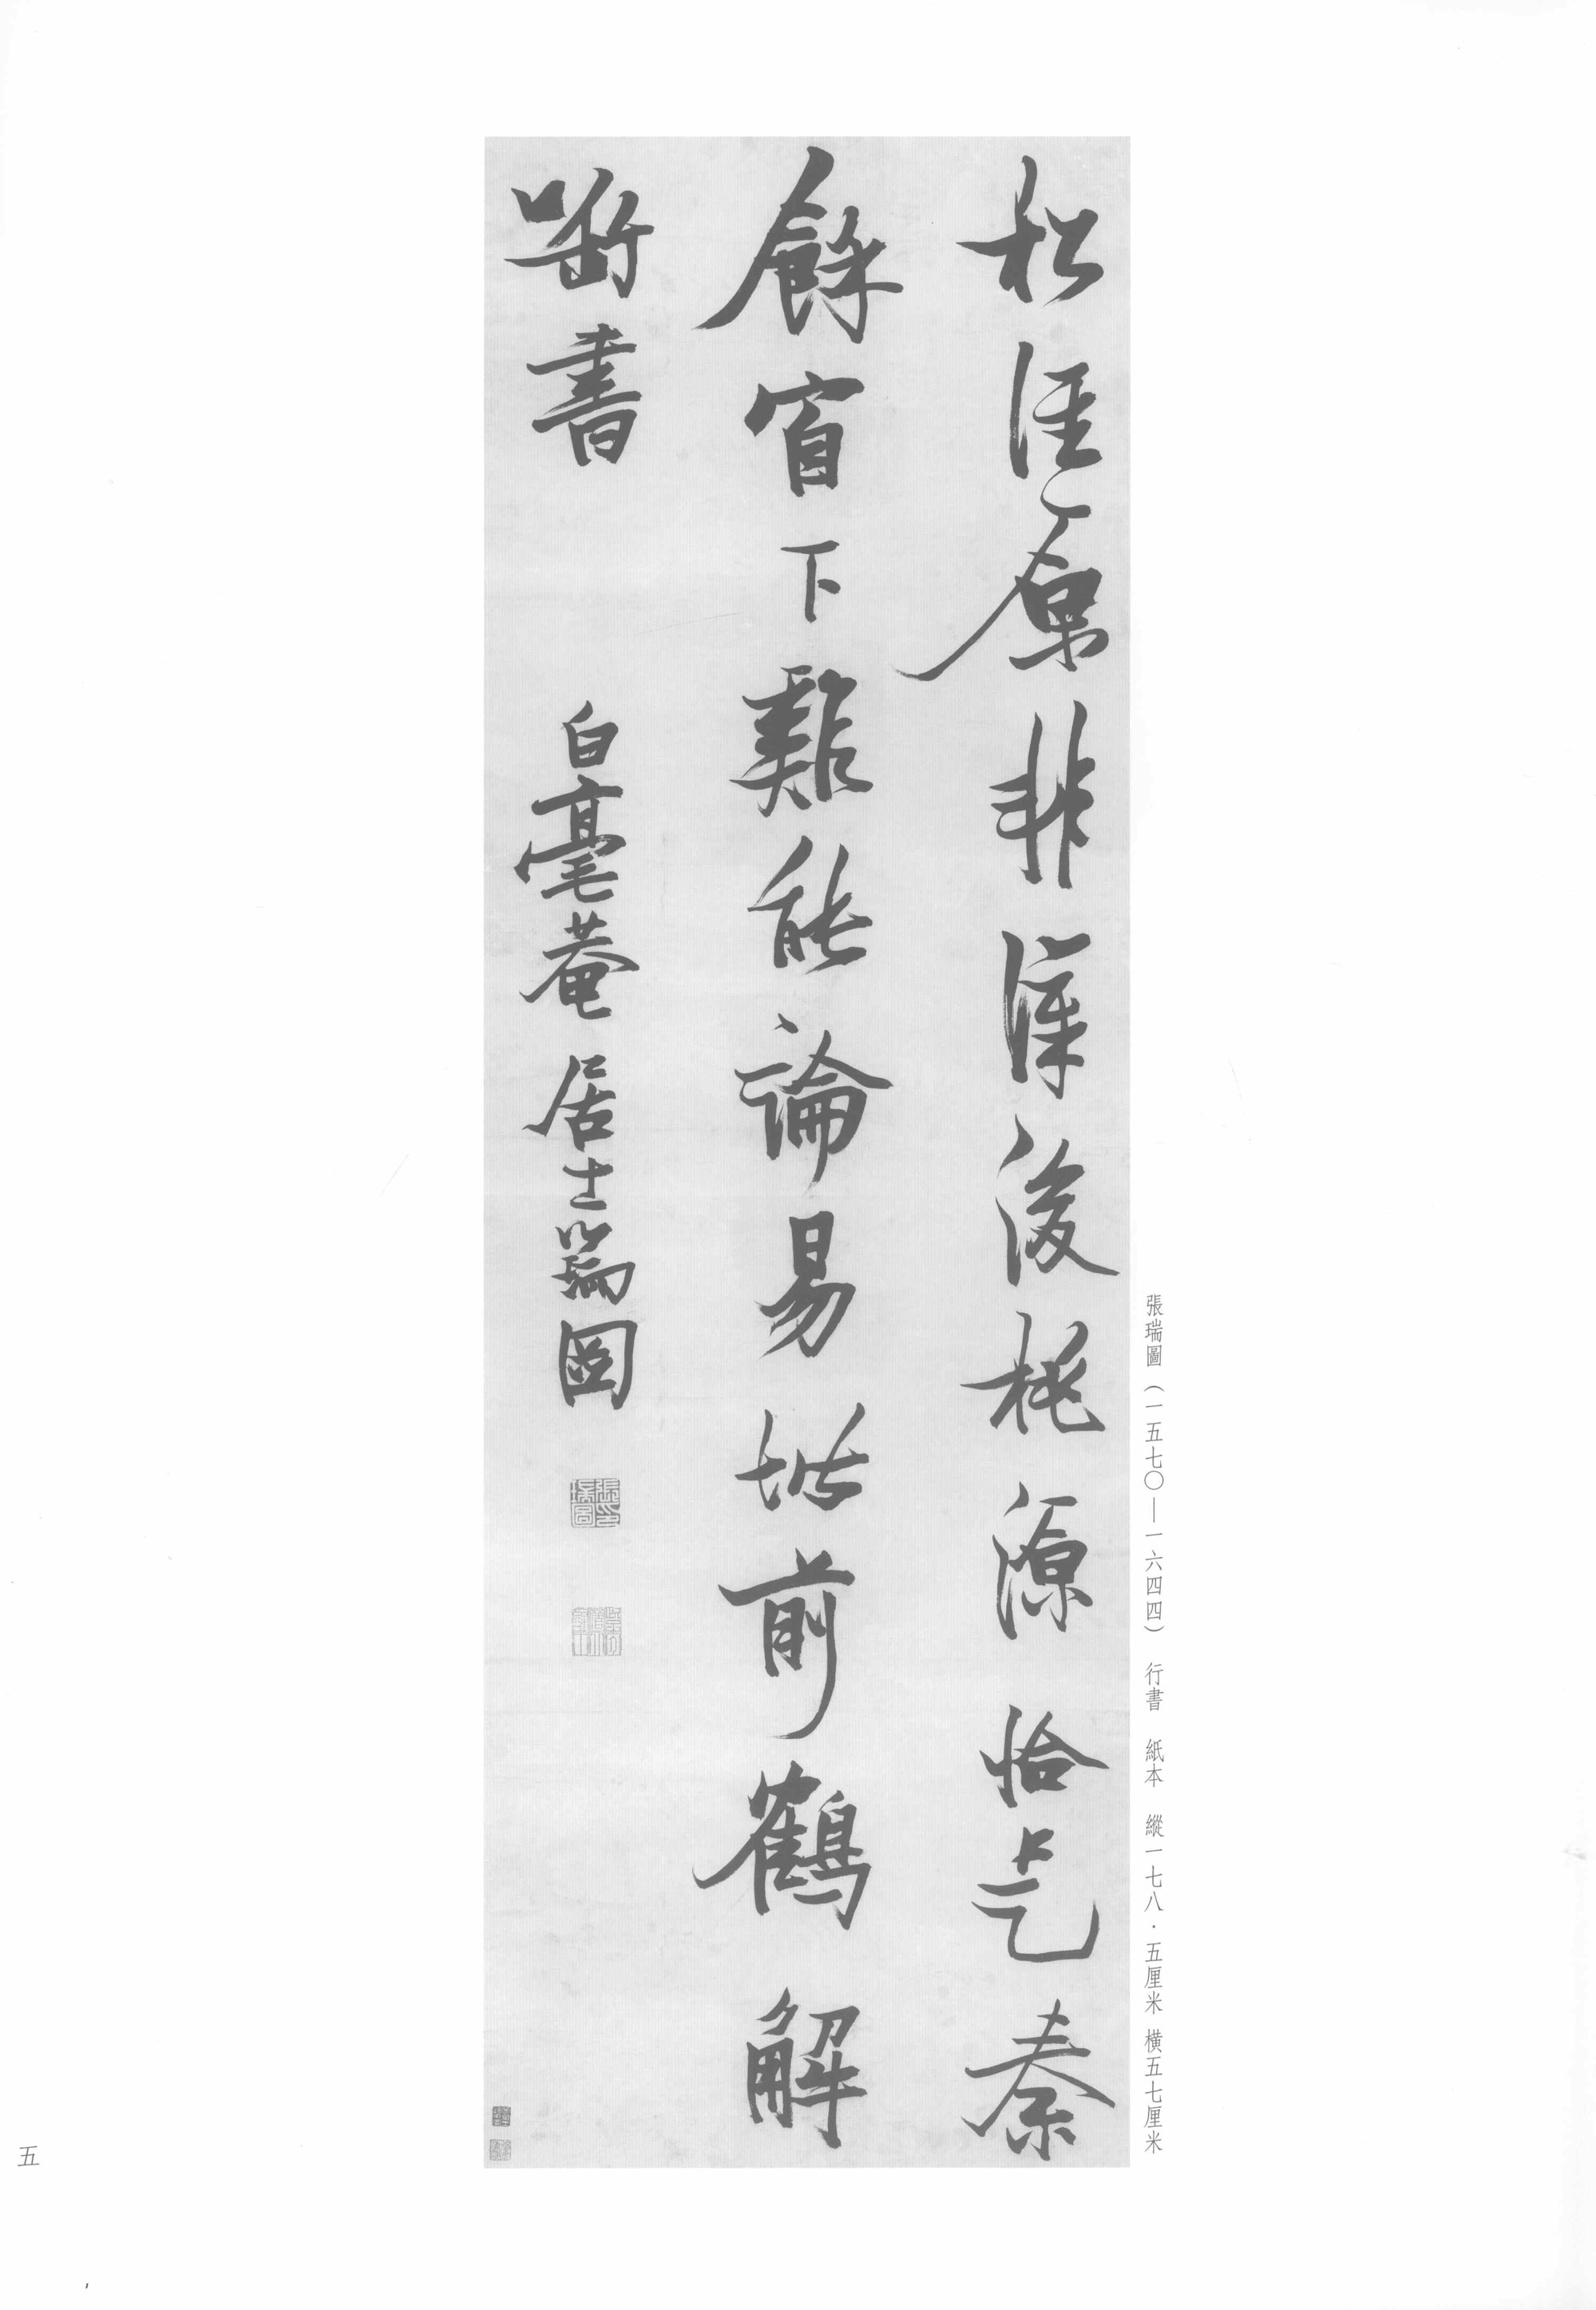 張瑞圖（一五七〇—一六四四） 行書 紙本 縱一七八·五厘米 橫五七厘米
松徑原非漢後桃源恰是秦
餘窗下雞能論易堦前鶴解
啣書 白毫菴居士瑞圖
張瑞圖印
五